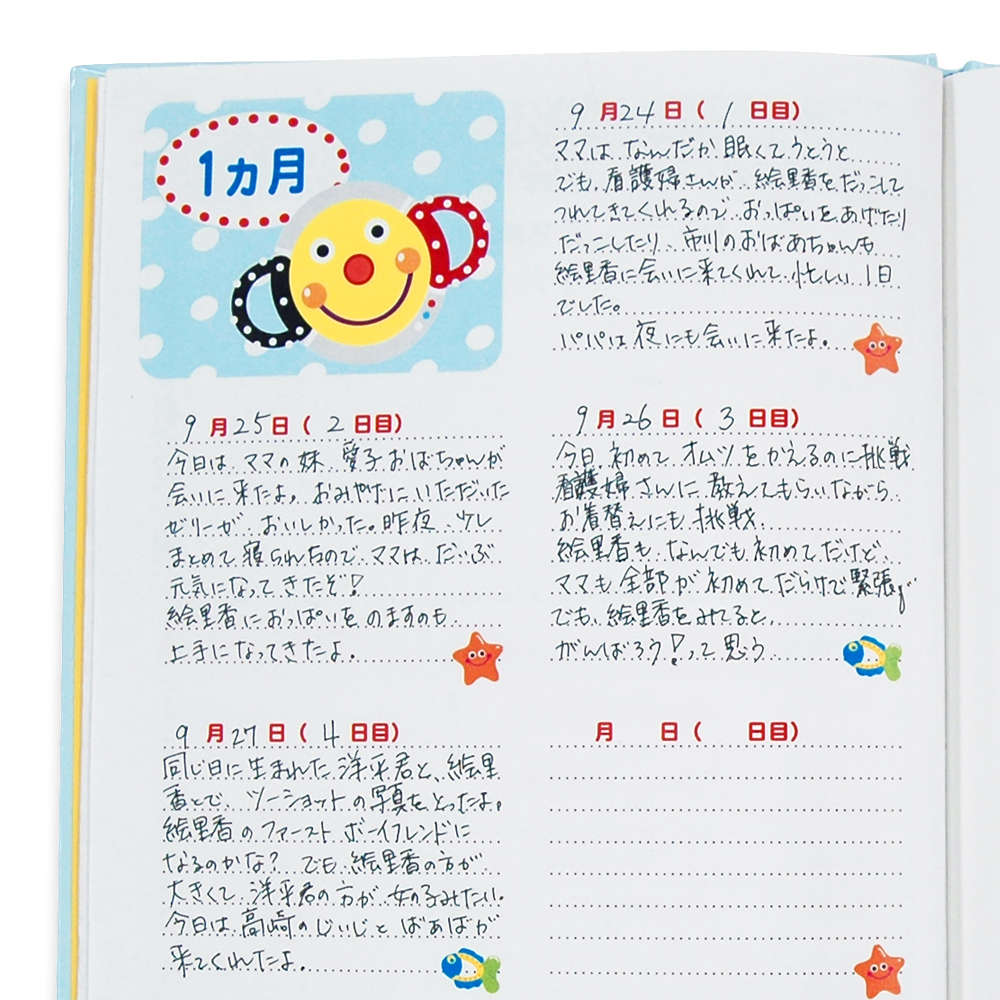 1ヵ月
9月24日(1日目)
ママは なんだか 眠くて うとうと
でも、看護婦さんが 絵里香を だっこして
つれてきてくれるので おっぱいを あげたり
だっこしたり、市川のおばあちゃんも
絵里香に会いに来てくれて 忙しい 1日
でした。
パパは夜にも会いに来たよ。
9月25日(2日目)
今日は ママの妹 愛子おばちゃんが
会いに来たよ。おみやげに いただいた
ゼリーが おいしかった。昨夜 少し
まとめて寝られたので ママは だいぶ
元気になってきたぞ!
絵里香におっぱいを のますのも
上手になってきたよ。
9月26日(3日目)
今日、初めて オムツをかえるのに挑戦
看護婦さんに 教えてもらいながら
お着替えにも挑戦
絵里香も なんでも初めてだけど、
ママも 全部が初めてだらけで緊張!
でも、絵里香をみてると、
がんばろう!って思う
9月27日(4日目)
同じ日に生まれた洋平君と、絵里
香とで ツーショットの写真をとったよ。
絵里香のファーストボーイフレンドに
なるのかな? でも 絵里香の方が
大きくて 洋平君の方が 女の子みたい。
今日は 高崎のじいじと ばあばが
来てくれたよ。
月 日( 日目)